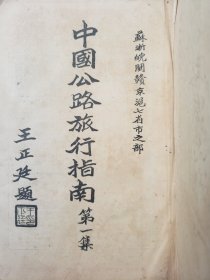 蘇浙皖閩贛京滬七省市之部
中國公路旅行指南 第一集
王正廷題